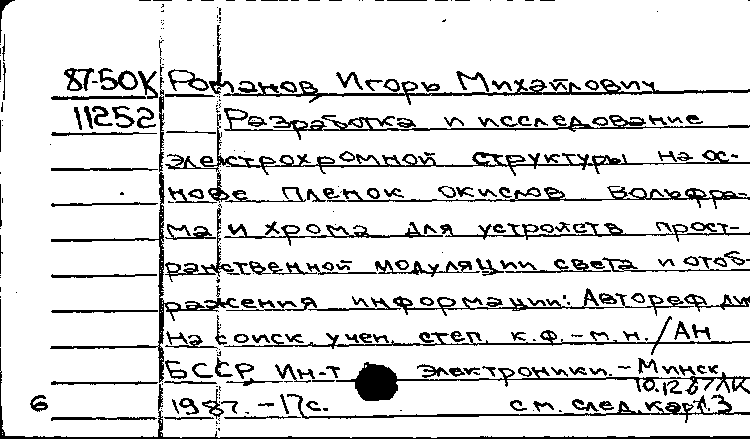 87-50К Романов, Игорь Михайлович
11252 Разработка и исследование
электрохромной структуры на ос-
нове пленок окислов вольфра-
ма и хрома для устройств прост-
ранственной модуляции света и отоб-
ражения информации: Автореф. дис.
На соиск. учен. степ. к.ф.-м.н. / АН
БССР, Ин-т электроники. - Минск,
10.12.87 ЛК
6 1987. - 17 с. см. след. карт. 3